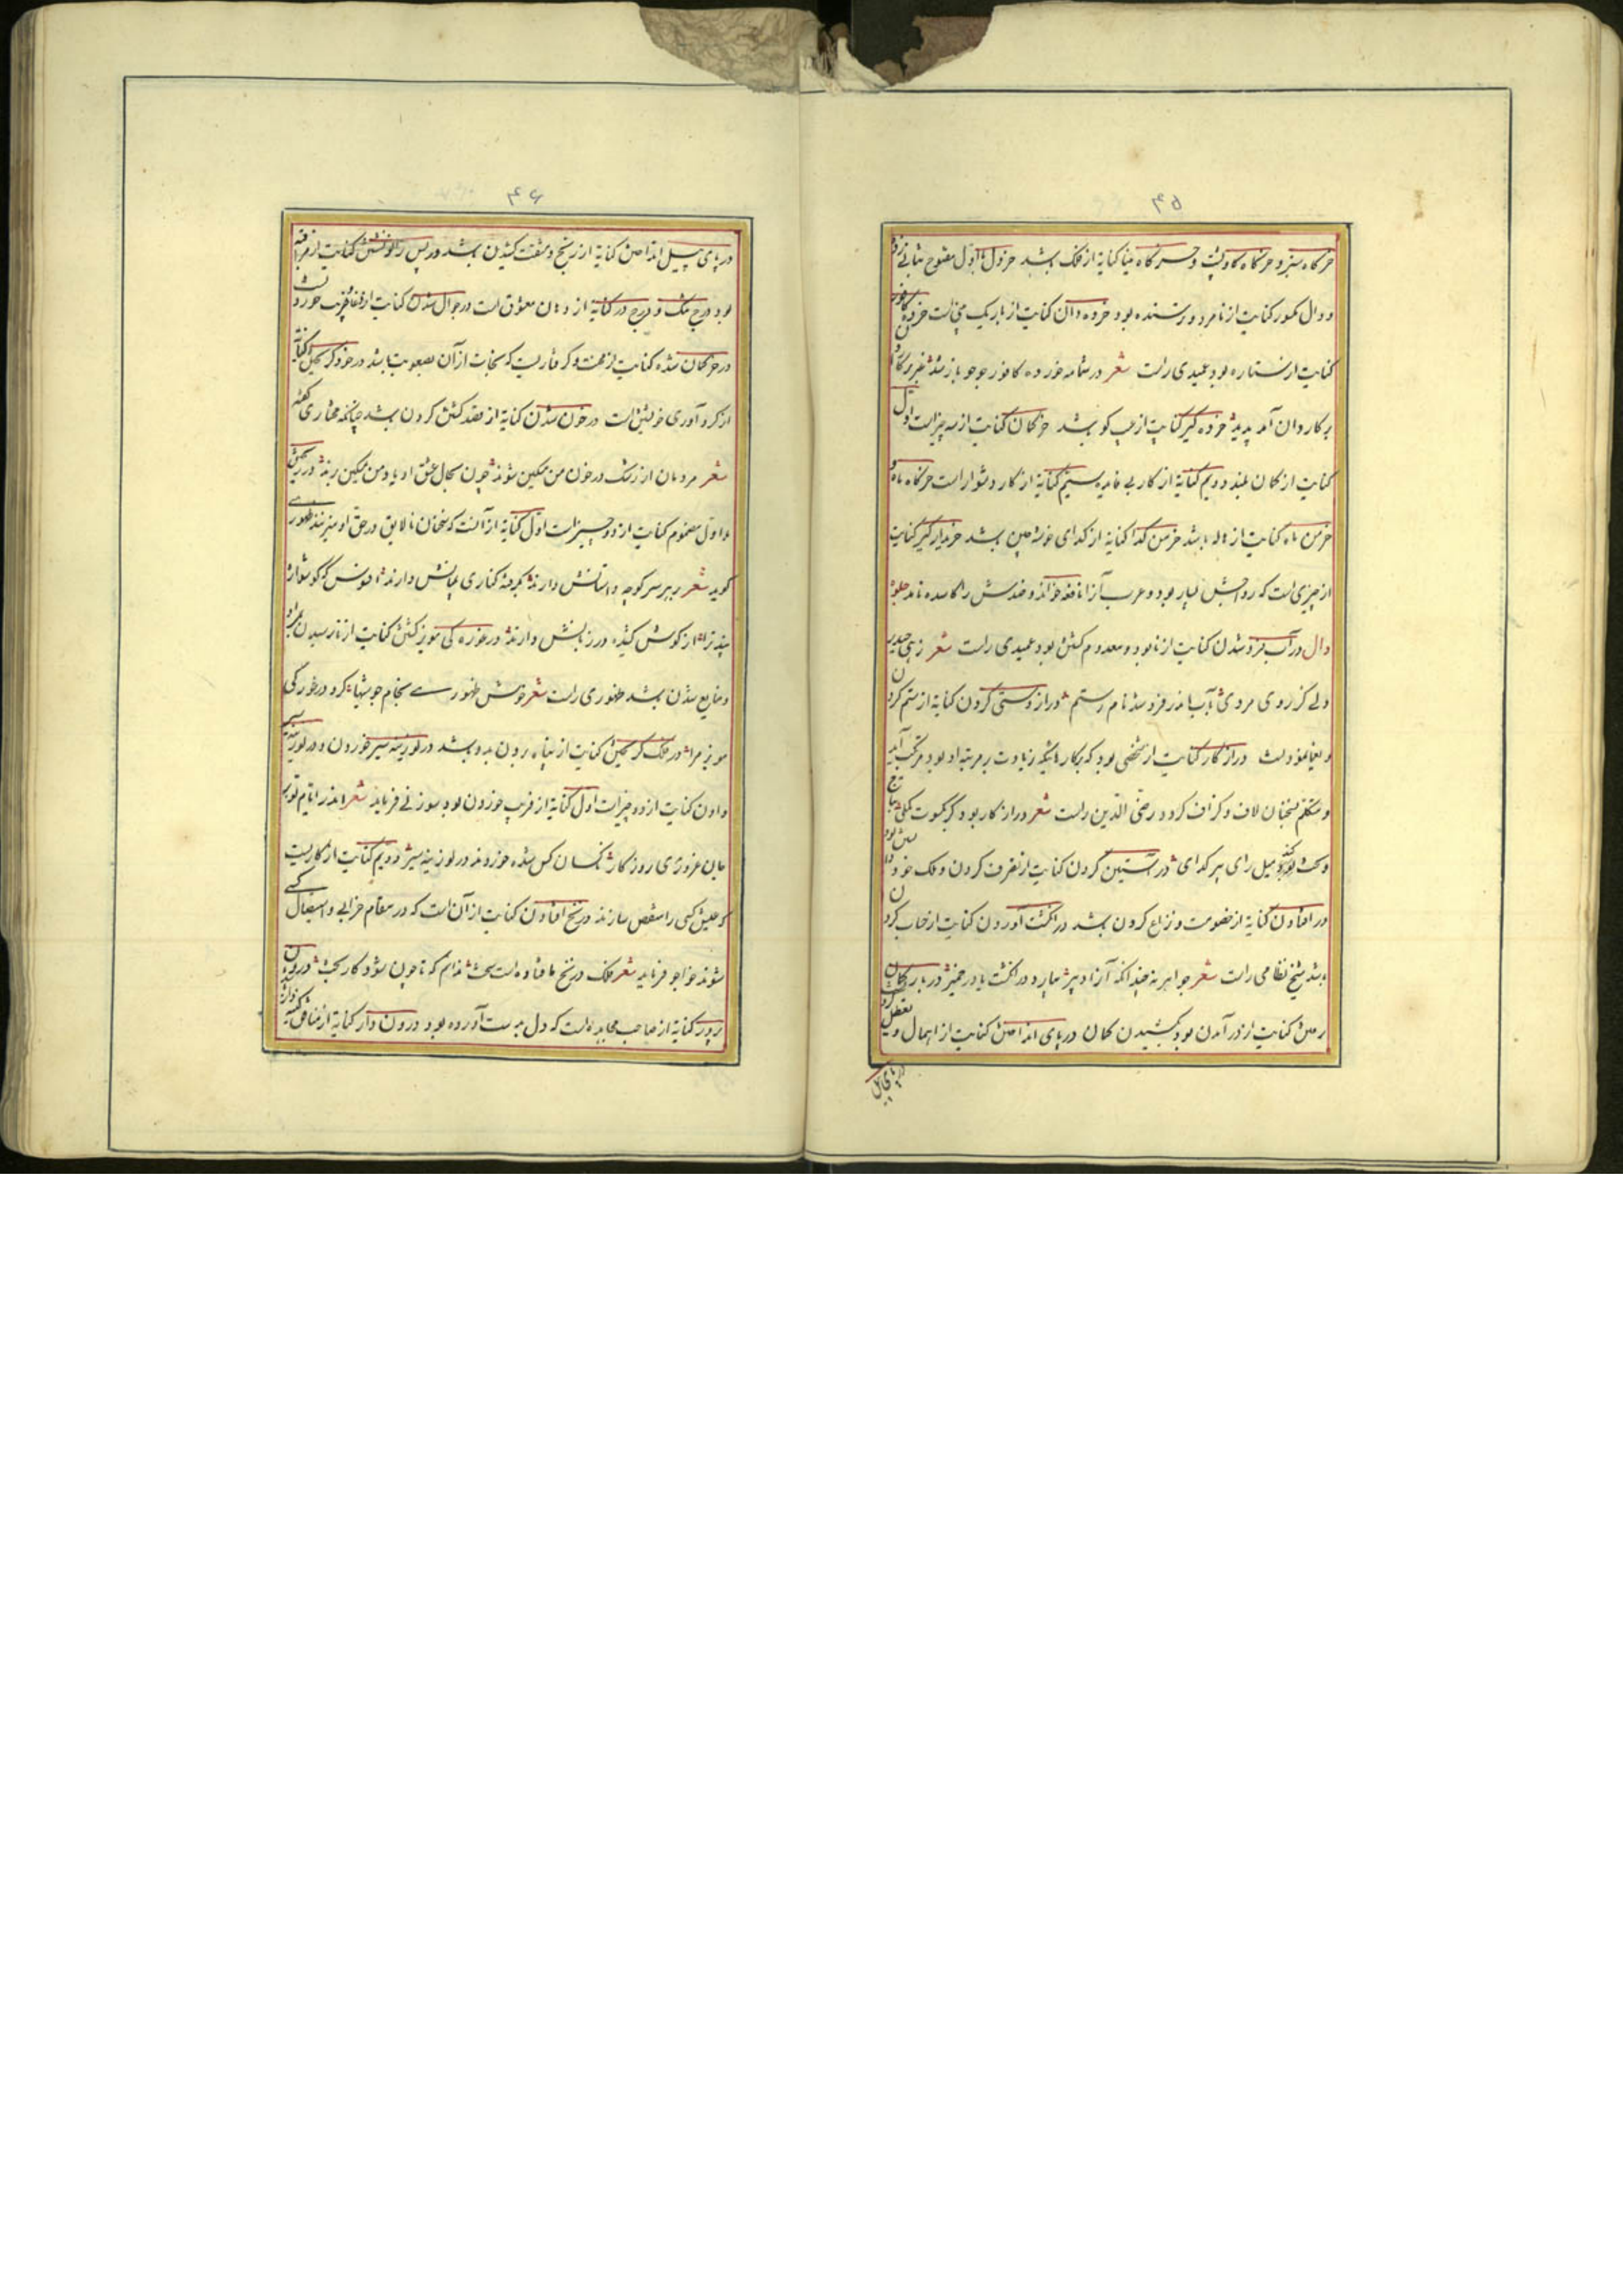 ۴۵
خرگاه سبز و خرگاه کاوپشت و خرگاه مینا کنایه از فلک باشد خزدل با اول مفتوح بثانی زده
و دال مکسور کنایت از نامرد و ترسنده بود خرده دان کنایت از باریک بین است خرده کافور
کنایت از ستاره بود عمیدی راست شعر در شمامه خورده کافور جوجو باز شد
بر کاروان آمد پدید خرده گیر کنایت از عیب کو باشد خرکمان کنایت از سه چیز است اول
کنایت از کمان بلند دویم کنایة از کار بی فایده سیم کنایة از کار دشوار است خرگاه ماه و
خرمن ماه کنایت از هاله باشد خرمن گدا کنایه از گدای خوشه چین باشد خریدار گیر کنایت
از چیزی است که رواجش بسیار بود و عرب آنرا نافقه خوانند و ضدش را کاسده نامند جلوهٔ
دال در آب فرو شدن کنایت از نابود و معدوم گشتن بود عمیدی راست شعر زهی حیدر
دلی کز روی مردی بآب اندر فرو شد نام رستم دراز دستی کردن کنایة از ستم کردن
و یغما نمودنست دراز کار کنایت از شخصی بود که بکارهائیکه زیادت بر مرتبه او بود مرتکب آید
و متکلم بسخنان لاف و گزاف گردد رضی الدین راست شعر دراز کار بود گر بکسوت ملکی
در آستین کردن کنایت از تصرف کردن و ملک خود
در افتادن کنایة از خصومت و نزاع کردن باشد در انگشت آوردن کنایت از حساب کردن
باشد شیخ نظامی راست شعر جواهر نه چندانکه آنرا دبیر بیارد در انگشت یا در ضمیر در بار کمان
رفتن کنایت از در آمدن بود بکشیدن کمان در پای انداختن کنایت از اهمال و تعطیل
در پای پیل
۴۶
در پای پیل انداختن کنایة از رنج و مشقت کشیدن باشد در پس زانو نشستن کنایت از مراقبه
بود درج مشک و درج در کنایة از دهان معشوق است در جوال شدن کنایت از فریب خوردنست
در خرکمان شدن کنایت از محنت و گرفتاریست که نجات از آن بصعوبت باشد در خود گریختن کنایة
از گرد آوری خویش است در خون شدن کنایة از قصد کشتن کردن باشد چنانکه مختاری گفته
شعر مردمان از رشک در خون من مسکین شوند چون سگال عشق او با من مسکین رسد در
و اول مضموم کنایت از دو چیز است اول کنایة از آنست که سخنان نالایق در حق او میزنند ظهوری
گوید شعر بهر سر کوچه داستانش دارند بگرفته کناری بمیانش دارند افسوس که گوشواره
پند ترا از گوش کشیده در زبانش دارند در غوره کی مویز گشتن کنایت از نارسیدن بمراد
و ضایع شدن باشد ظهوری راست شعر خوش ظهوری سخام جوشیها کرد در غورگی
مویز مرا در ملک گریختن کنایت از پناه بردن بدو باشد در لوزینه سیر خوردن و در لوزینه سیر
دادن کنایت از دو چیز است اول کنایة از فریب خوردن بود سوزنی فرماید شعر اندر ایام تو
دویم کنایت از کاریست
که عیش کسی را منغص سازند در نخ افتادن کنایت از آن است که در مقام خرابی و استیصال کسی
شوند خواجو فرماید شعر فلک در نخ ما فتاده است سخت ندانم که تا چون شود کار بخت درون
پرور کنایة از صاحب مجاهده است که دل بدست آورده بود درون دار کنایة از منافق